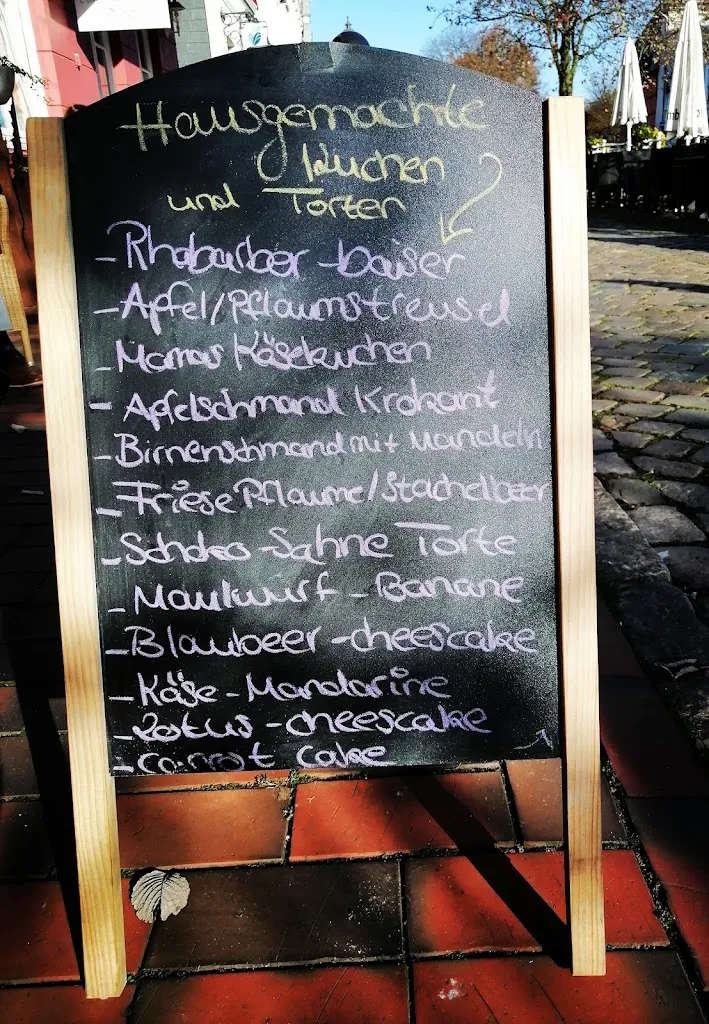 Hausgemachte
Kuchen
und Torten
- Rhabarber - baiser
- Apfel/Pflaumstreusel
- Mamas Käsekuchen
- Apfelschmand Krokant
- Birnenschmand mit Mandeln
- Friese Pflaume/Stachelbeer
- Schoko - Sahne Torte
- Maulwurf - Banane
- Blaubeer - cheescake
- Käse - Mandarine
- Lotus - cheescake
- Carrot cake